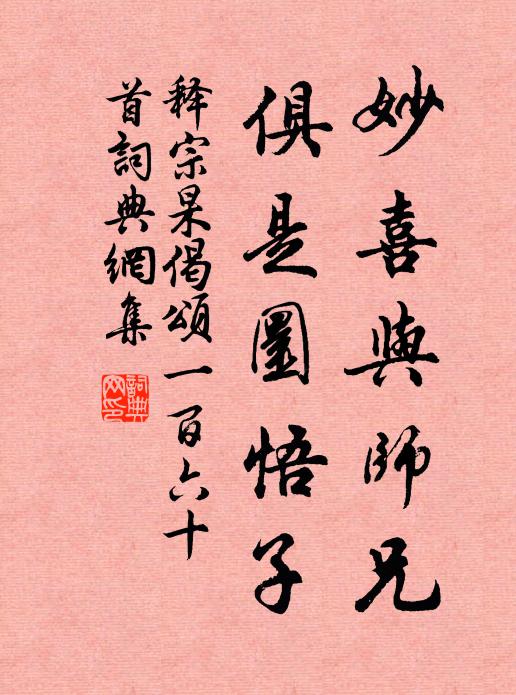 妙喜與師兄
俱是圜悟子
释宗杲偈頌一百六十
首詞典網集
詞典網印